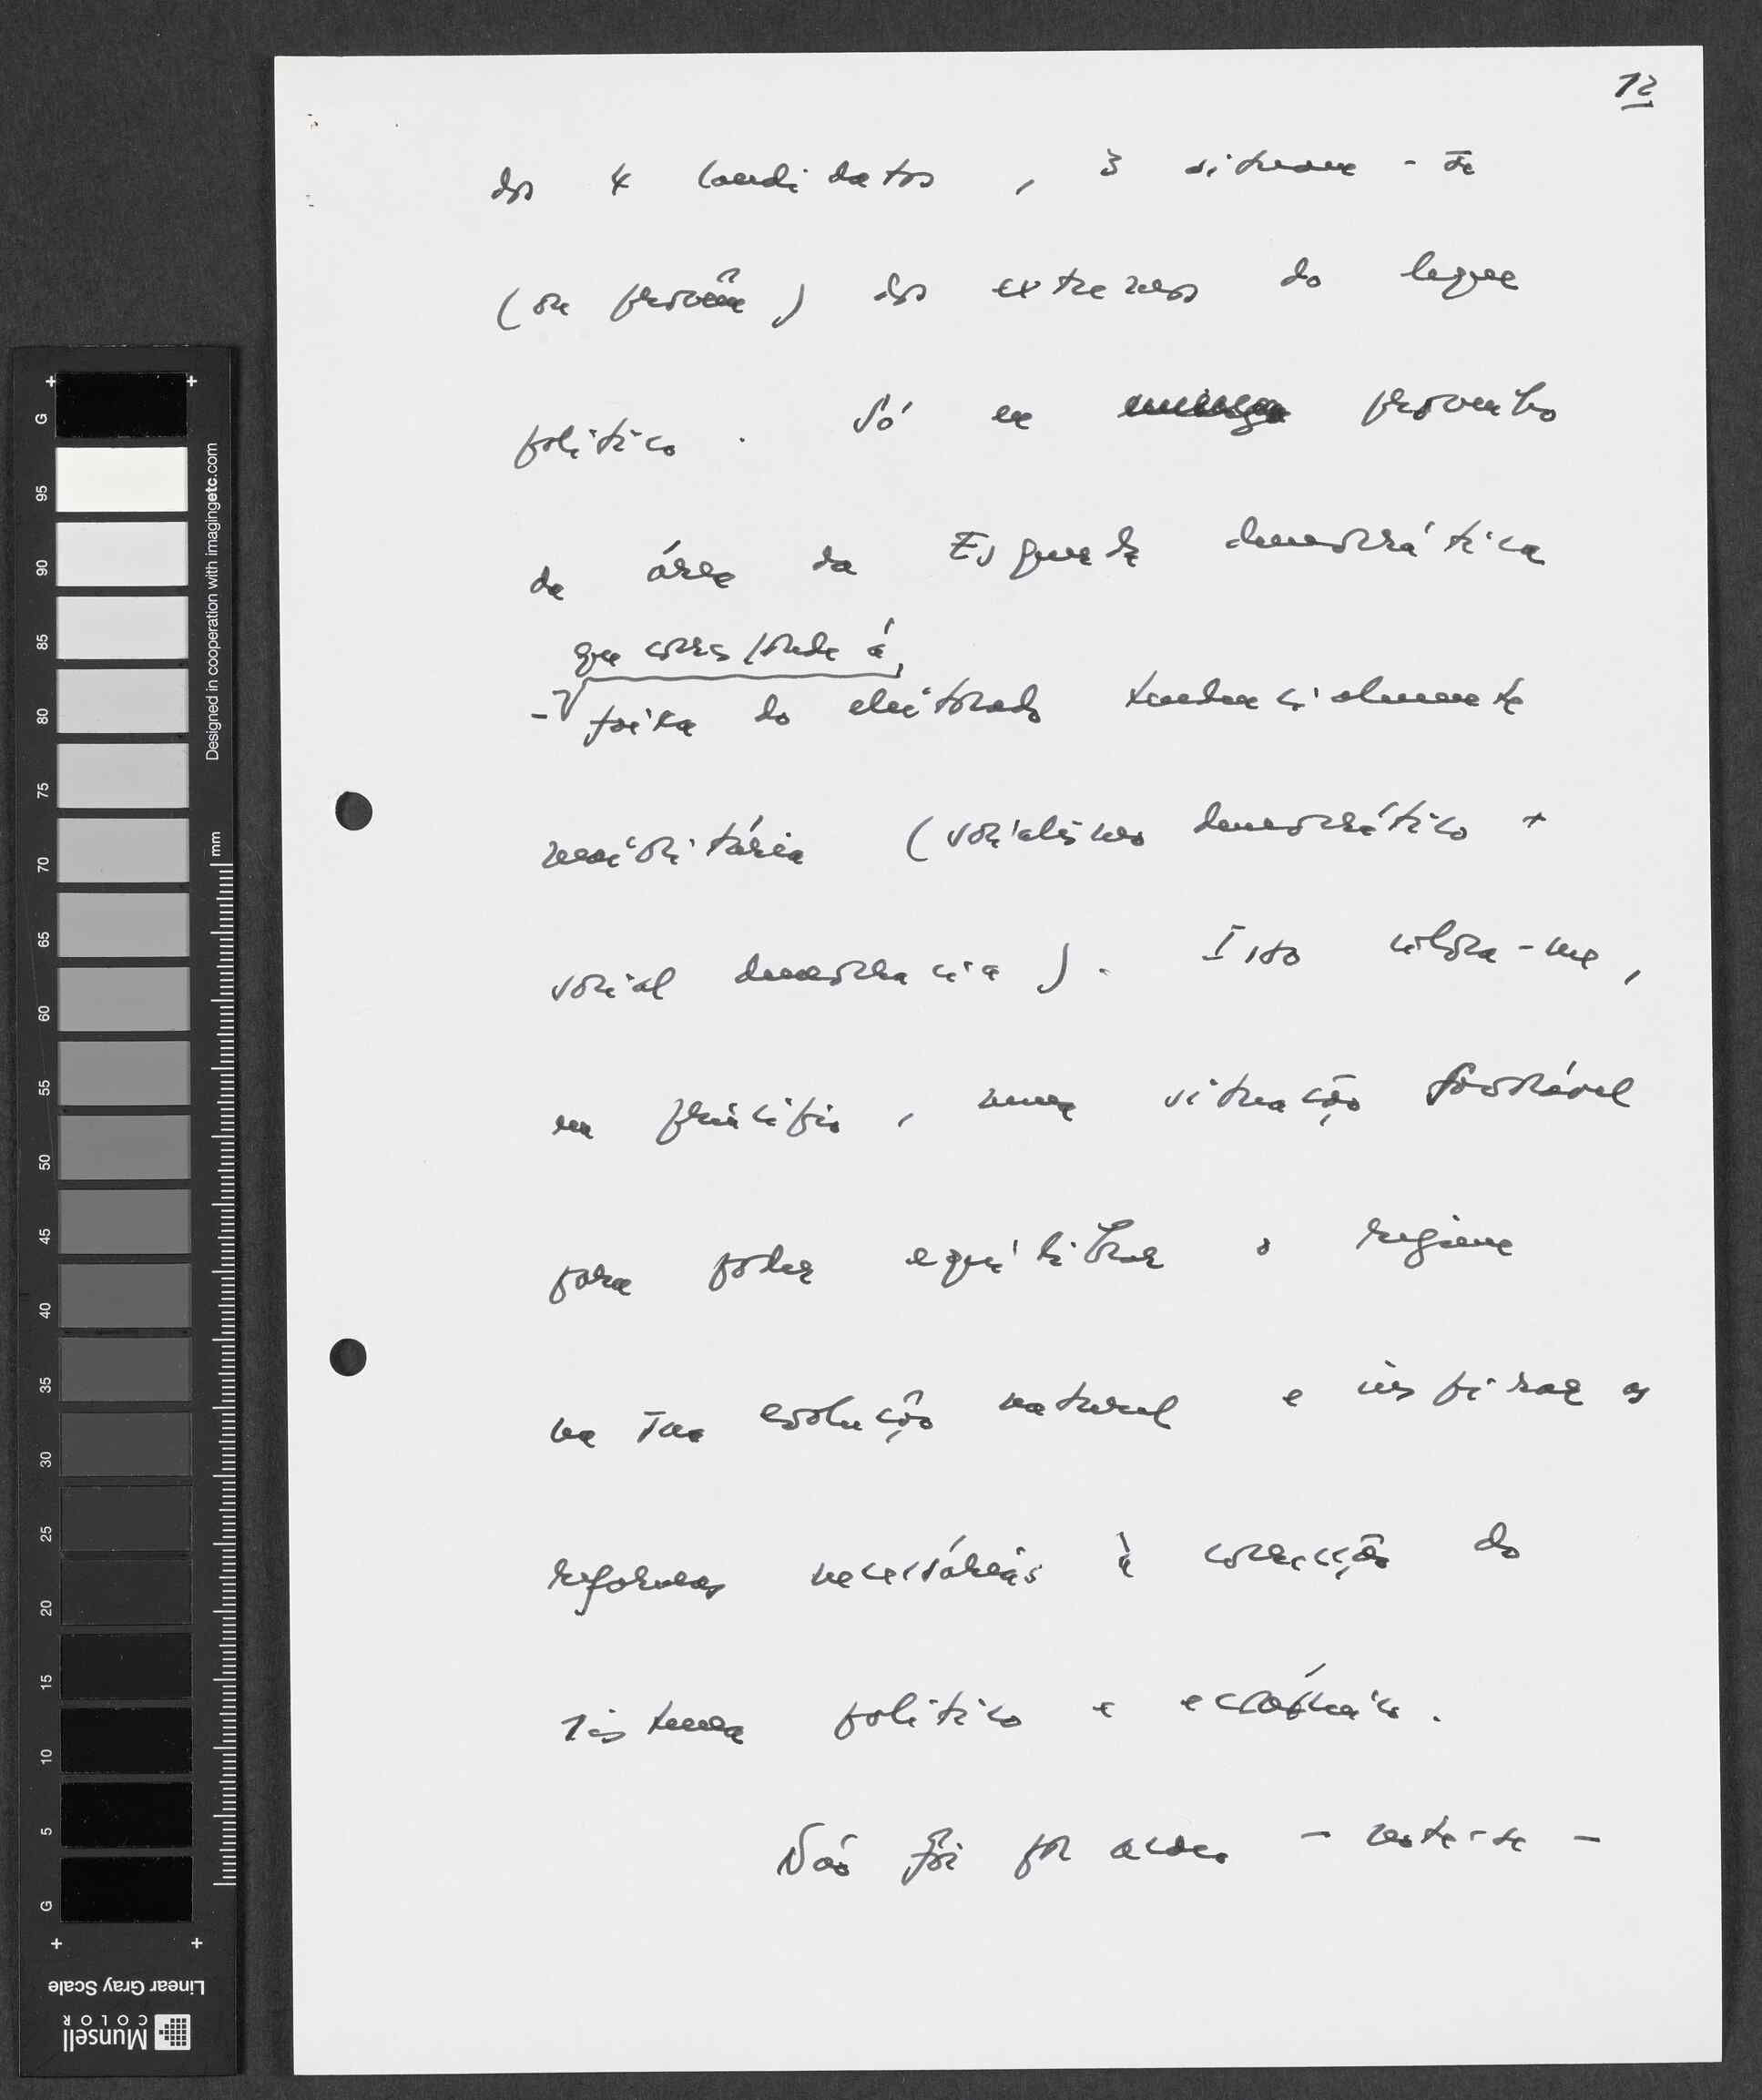 12
dos 4 candidatos, 3 situam-se
(ou provêm) dos extremos do leque
político. Só eu provenho
da área da Esquerda democrática
que corresponde à
- faixa do eleitorado tendencialmente
maioritária (socialismo democrático +
social democracia). Isso coloca-me,
em princípio, numa situação favorável
para poder equilibrar o regime
na sua evolução natural e inspirar as
reformas necessárias à correcção do
sistema político e económico.
Não foi por acaso - note-se -
G
95
90
85
80
75
70
65
60
55
50
45
40
35
30
25
20
15
10
5
G
Designed in cooperation with imagingetc.com
mm
Linear Gray Scale
Munsell
COLOR